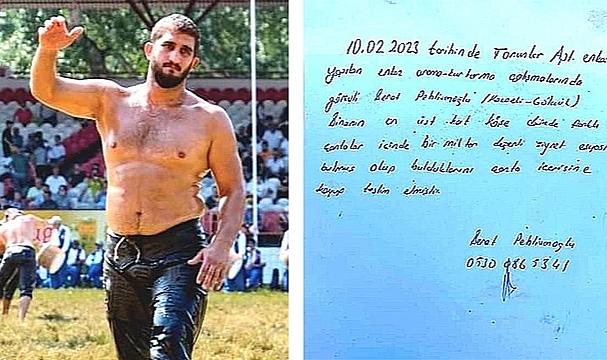 10.02.2023 tarihinde Toruntar Apt. enkaz
yapılan enkaz arama-kurtarma çalışmalarında
görevli Berat Pehlivanoğlu (Kocaeli-Gölcük)
Binanın en üst kat köşe dairede farklı
çantalar içinde bir miktar değerli ziynet eşyası
bulmuş olup bulduklarını çanta içerisine
koyup teslim etmiştir.
Berat Pehlivanoğlu
0530 086 5341